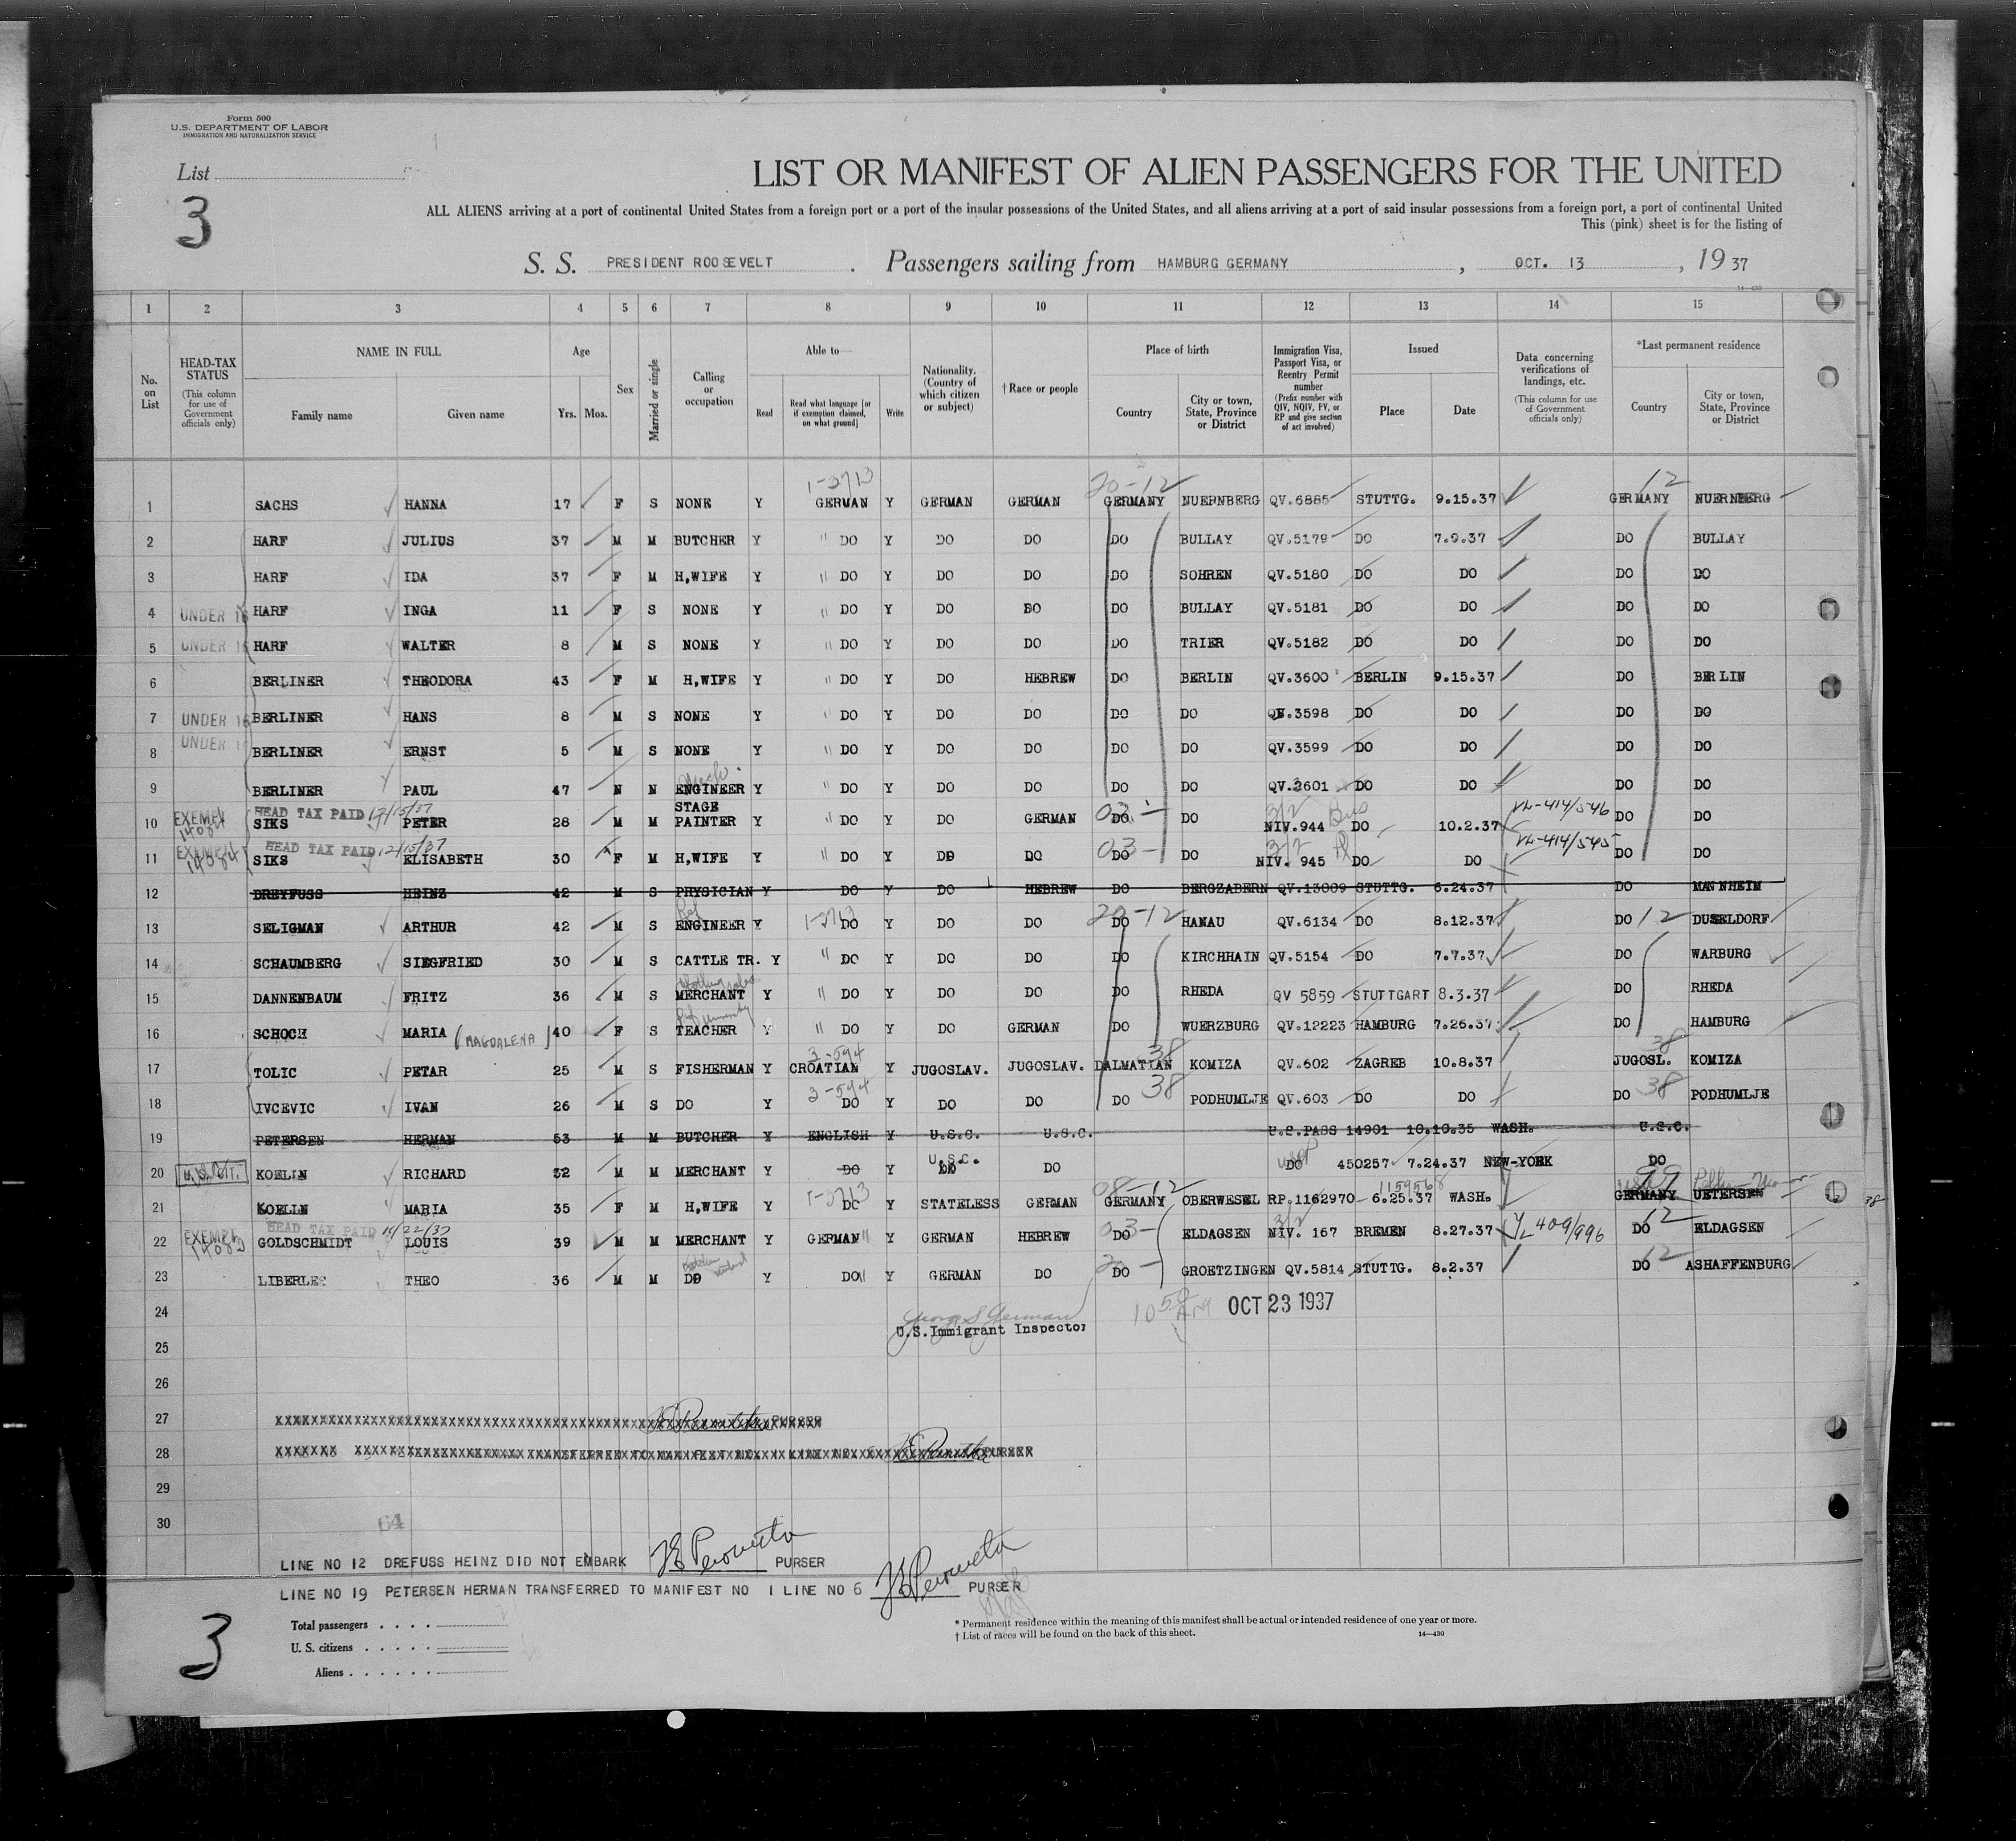 Form 500
U.S. DEPARTMENT OF LABOR
IMMIGRATION AND NATURALIZATION SERVICE
List
3
LIST OR MANIFEST OF ALIEN PASSENGERS FOR THE UNITED
ALL ALIENS arriving at a port of continental United States from a foreign port or a port of the insular possessions of the United States, and all aliens arriving at a port of said insular possessions from a foreign port, a port of continental United
This (pink) sheet is for the listing of
S. S. PRESIDENT ROOSEVELT . Passengers sailing from HAMBURG GERMANY , OCT. 13 , 19 37
14—430
1 2 3 4 5 6 7 8 9 10 11 12 13 14 15
No. on List
HEAD-TAX STATUS (This column for use of Government officials only)
NAME IN FULL Family name Given name
Age Yrs. Mos.
Sex
Married or single
Calling or occupation
Able to— Read Read what language [or if exemption claimed, on what ground] Write
Nationality. (Country of which citizen or subject)
† Race or people
Place of birth Country City or town, State, Province or District
Immigration Visa, Passport Visa, or Reentry Permit number (Prefix number with QIV, NQIV, FV, or RP and give section of act involved)
Issued Place Date
Data concerning verifications of landings, etc. (This column for use of Government officials only)
*Last permanent residence Country City or town, State, Province or District
1-2713 20-12 12
1 SACHS HANNA 17 F S NONE Y GERMAN Y GERMAN GERMAN GERMANY NUERNBERG QV.6885 STUTTG. 9.15.37 GERMANY NUERNBERG
2 HARF JULIUS 37 M M BUTCHER Y " DO Y DO DO DO BULLAY QV.5179 DO 7.9.37 DO BULLAY
3 HARF IDA 37 F M H,WIFE Y " DO Y DO DO DO SOHREN QV.5180 DO DO DO DO
4 UNDER 16 HARF INGA 11 F S NONE Y " DO Y DO DO DO BULLAY QV.5181 DO DO DO DO
5 UNDER 16 HARF WALTER 8 M S NONE Y " DO Y DO DO DO TRIER QV.5182 DO DO DO DO
6 BERLINER THEODORA 43 F M H,WIFE Y " DO Y DO HEBREW DO BERLIN QV.3600 BERLIN 9.15.37 DO BERLIN
7 UNDER 16 BERLINER HANS 8 M S NONE Y " DO Y DO DO DO DO QV.3598 DO DO DO DO
8 UNDER 16 BERLINER ERNST 5 M S NONE Y " DO Y DO DO DO DO QV.3599 DO DO DO DO
Mech.
9 BERLINER PAUL 47 N N ENGINEER Y " DO Y DO DO DO DO QV.2601 DO DO DO DO
EXEMPT HEAD TAX PAID 12/15/37 STAGE 03- 3/2 VL-414/546
10 14084 SIKS PETER 28 M M PAINTER Y " DO Y DO GERMAN DO DO NIV.944 DO 10.2.37 DO DO
EXEMPT HEAD TAX PAID 12/15/37 03- 3/2 VL-414/545
11 14084 SIKS ELISABETH 30 F M H,WIFE Y " DO Y DO DO DO DO NIV. 945 DO DO DO DO
12 DREYFUSS HEINZ 42 M S PHYSICIAN Y DO Y DO HEBREW DO BERGZABERN QV.13009 STUTTG. 6.24.37 DO MANNHEIM
13 SELIGMAN ARTHUR 42 M S ENGINEER Y 1-2713 DO Y DO DO 20-12 DO HANAU QV.6134 DO 8.12.37 DO 12 DUSELDORF
14 SCHAUMBERG SIEGFRIED 30 M S CATTLE TR. Y " DO Y DO DO DO KIRCHHAIN QV.5154 DO 7.7.37 DO WARBURG
15 DANNENBAUM FRITZ 36 M S MERCHANT Y " DO Y DO DO DO RHEDA QV 5859 STUTTGART 8.3.37 DO RHEDA
16 SCHOCH MARIA (MAGDALENA) 40 F S TEACHER Y " DO Y DO GERMAN DO WUERZBURG QV.12223 HAMBURG 7.26.37 DO HAMBURG
3-594 38 38
17 TOLIC PETAR 25 M S FISHERMAN Y CROATIAN Y JUGOSLAV. JUGOSLAV. DALMATIAN KOMIZA QV.602 ZAGREB 10.8.37 JUGOSL. KOMIZA
3-594 38 38
18 IVCEVIC IVAN 26 M S DO Y DO Y DO DO DO PODHUMLJE QV.603 DO DO DO PODHUMLJE
19 PETERSEN HERMAN 53 M M BUTCHER Y ENGLISH Y U.S.C. U.S.C. U.S.PASS 14901 10.10.35 WASH. U.S.C.
20 U.S. CIT. KOELLN RICHARD 32 M M MERCHANT Y DO Y U.S.C. DO DO USP DO 450257 7.24.37 NEW-YORK DO
1-2713 08-12 1159568 99
21 KOELLN MARIA 35 F M H,WIFE Y DO Y STATELESS GERMAN GERMANY OBERWESEL RP.1162970 6.25.37 WASH. GERMANY UETERSEN
EXEMPT HEAD TAX PAID 11/22/37 03- 3/2 12
22 14083 GOLDSCHMIDT LOUIS 39 M M MERCHANT Y GERMAN " Y GERMAN HEBREW DO ELDAGSEN NIV. 167 BREMEN 8.27.37 VL 409/996 DO ELDAGSEN
20- 12
23 LIBERLES THEO 36 M M DO Y DO " Y GERMAN DO DO GROETZINGEN QV.5814 STUTTG. 8.2.37 DO ASHAFFENBURG
24 10 50 AM OCT 23 1937
U.S.Immigrant Inspector
25
26
27 PURSER
28 PURSER
29
30
64
LINE NO 12 DREFUSS HEINZ DID NOT EMBARK PURSER
LINE NO 19 PETERSEN HERMAN TRANSFERRED TO MANIFEST NO 1 LINE NO 6 PURSER
3
Total passengers . . . .
U. S. citizens . . . . .
Aliens . . . . . .
* Permanent residence within the meaning of this manifest shall be actual or intended residence of one year or more.
† List of races will be found on the back of this sheet.
14—430
38